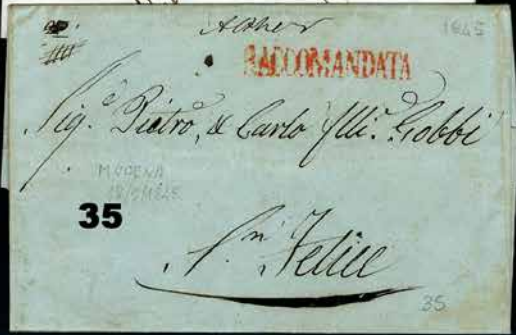 1845
RACCOMANDATA
Sig.e Pietro, & Carlo flli. Gobbi
MODENA
35
S.n Felice
35